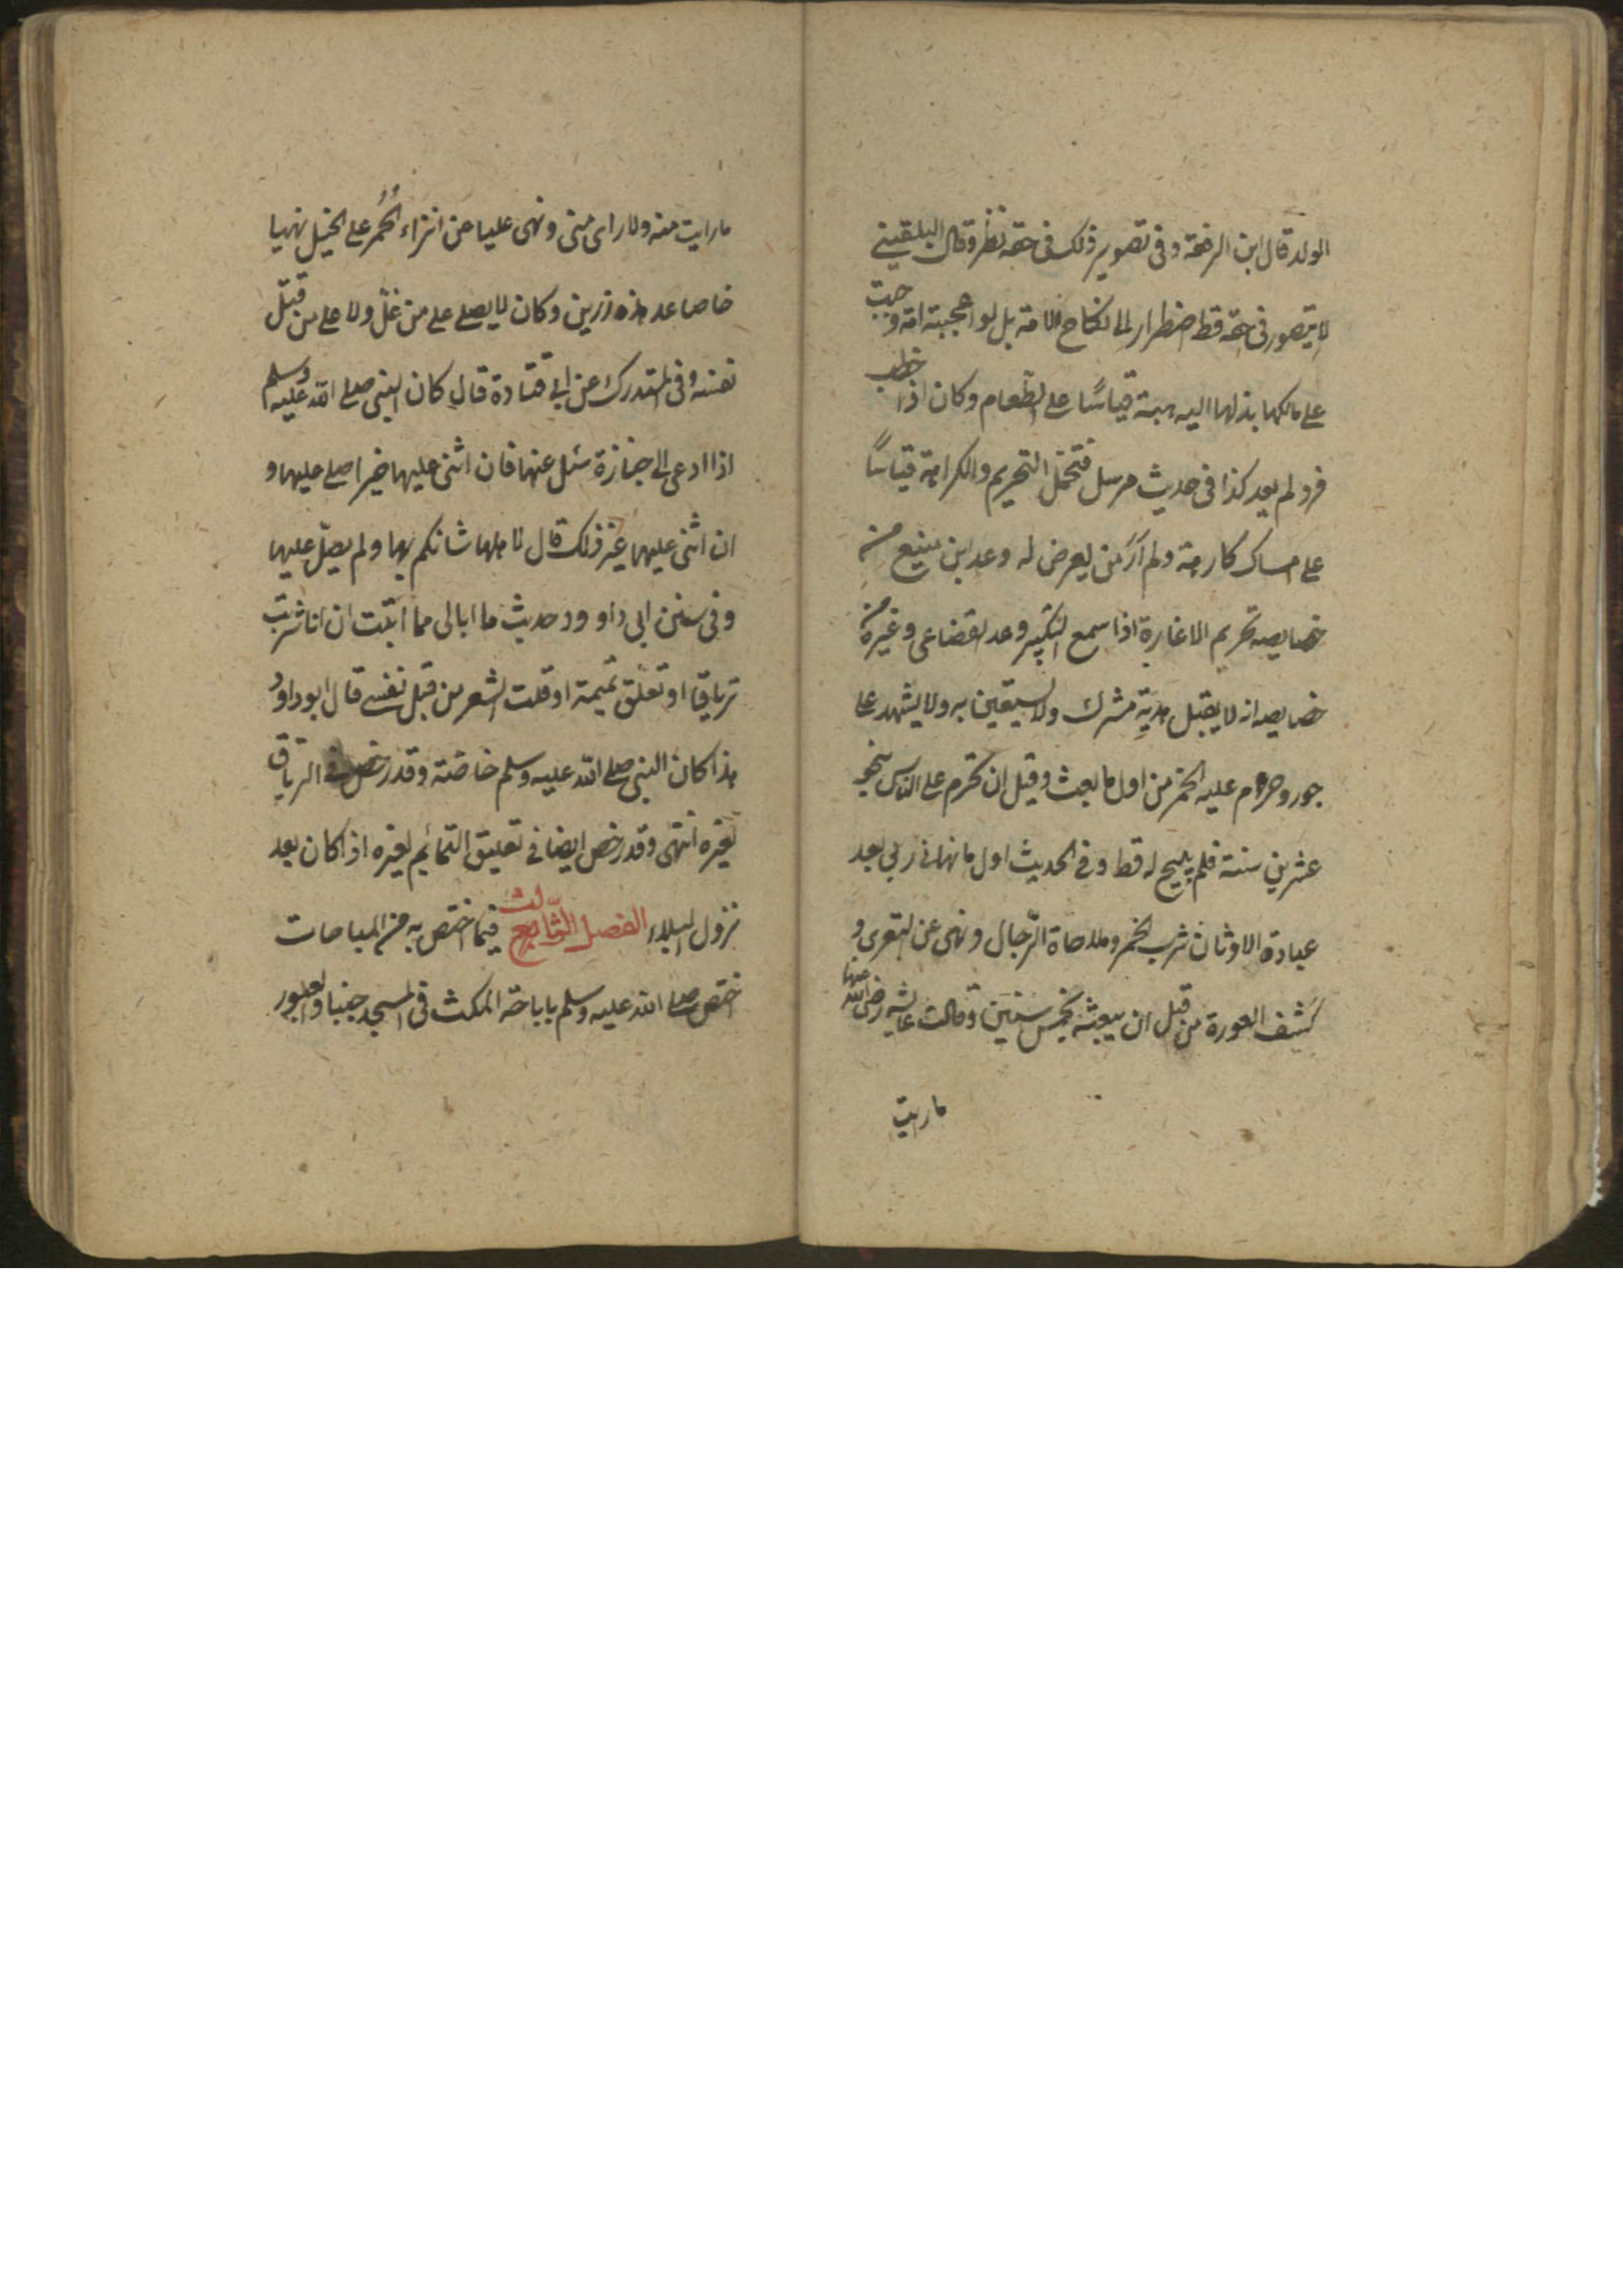 الولد قال ابن الرفعة وفى تصوير ذلك فى حقه نظر وقال البلقينى
لا يتصور فى حقه قط اضطرار الى نكاح الامة بل لو اعجبته امة وجبت
على مالكها بذلها اليه هبة قياسًا على الطعام وكان اذا خطب
فرد لم يعد كذا فى حديث مرسل فتحمل التحريم والكرامة قياسًا
على امساك كارهة ولم أرَ من يعرض له وعد ابن سبع من
خصايصه تحريم الاغارة اذا سمع التكبير وعد القضاعى وغيره من
خصايصه انه لا يقبل هدية مشرك ولا يستعين به ولا يشهد على
جور وحرم عليه الخمر من اول ما بعث وقيل ان تحرم على الناس بنحو
عشرين سنة فلم يبح له قط وفى الحديث اول ما نهانى ربى بعد
عبادة الاوثان شرب الخمر وملاحاة الرّجال ونهى عن التعرى و
كشف العورة من قبل ان يبعث بخمس سنين وقالت عايشه رضى الله عنها
ما رايت
ما رايت منه ولا راى منى ونهى عليا عن انزاء الحُمُر على الخيل نهيا
خاصا عد هذه رزين وكان لا يصلى على من غلّ ولا على من قتل
نفسه وفى المستدرك عن ابى قتادة قال كان النبى صلى الله عليه وسلم
اذا ادعى الى جنازة سئل عنها فان اثنى عليها خيرا صلى عليها و
ان اثنى عليها غير ذلك قال لاهلها شانكم بها ولم يصلّ عليها
وفى سنن ابى داوود حديث ما ابالى مما اتيت ان انا شربت
ترياقا او تعلّق تميمة او قلت الشعر من قبل نفسى قال ابو داود
هذا كان النبى صلى الله عليه وسلم خاصّة وقد رخص فى الترياق
لغيره انتهى وقد رخص ايضا فى تعليق التمائم لغيره اذا كان بعد
نزول البلاء الفصل الثالث فيما اختص به من المباحات
اختص صلى الله عليه وسلم باباحة المكث فى المسجد جنبا والعبور